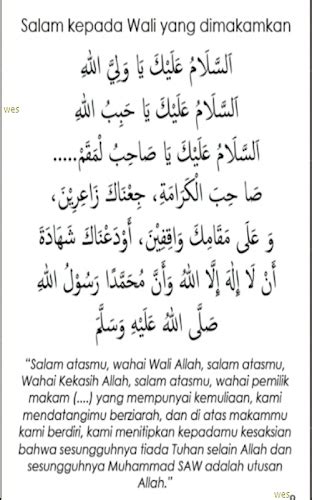 Salam kepada Wali yang dimakamkan
اَلسَّلَامُ عَلَيْكَ يَا وَلِيَّ اللهِ
اَلسَّلَامُ عَلَيْكَ يَا حَبِبُ اللهِ
wes
اَلسَّلَامُ عَلَيْكَ يَا صَاحِبُ لْمَقَمْ.....
صَا حِبَ الْكَرَامَةِ، جِعْنَاكَ زَاعِرِيْنَ،
وَ عَلَى مَقَامِكَ وَاقِفِيْنَ، أَوْدَعْنَاكَ شَهَادَةَ
أَنْ لَا إِلٰهَ إِلَّا اللهُ وَأَنَّ مُحَمَّدًا رَسُوْلُ اللهِ
صَلَّى اللهُ عَلَيْهِ وَسَلَّمَ
“Salam atasmu, wahai Wali Allah, salam atasmu,
Wahai Kekasih Allah, salam atasmu, wahai pemilik
makam (....) yang mempunyai kemuliaan, kami
mendatangimu berziarah, dan di atas makammu
kami berdiri, kami menitipkan kepadamu kesaksian
bahwa sesungguhnya tiada Tuhan selain Allah dan
sesungguhnya Muhammad SAW adalah utusan
Allah.”
wes